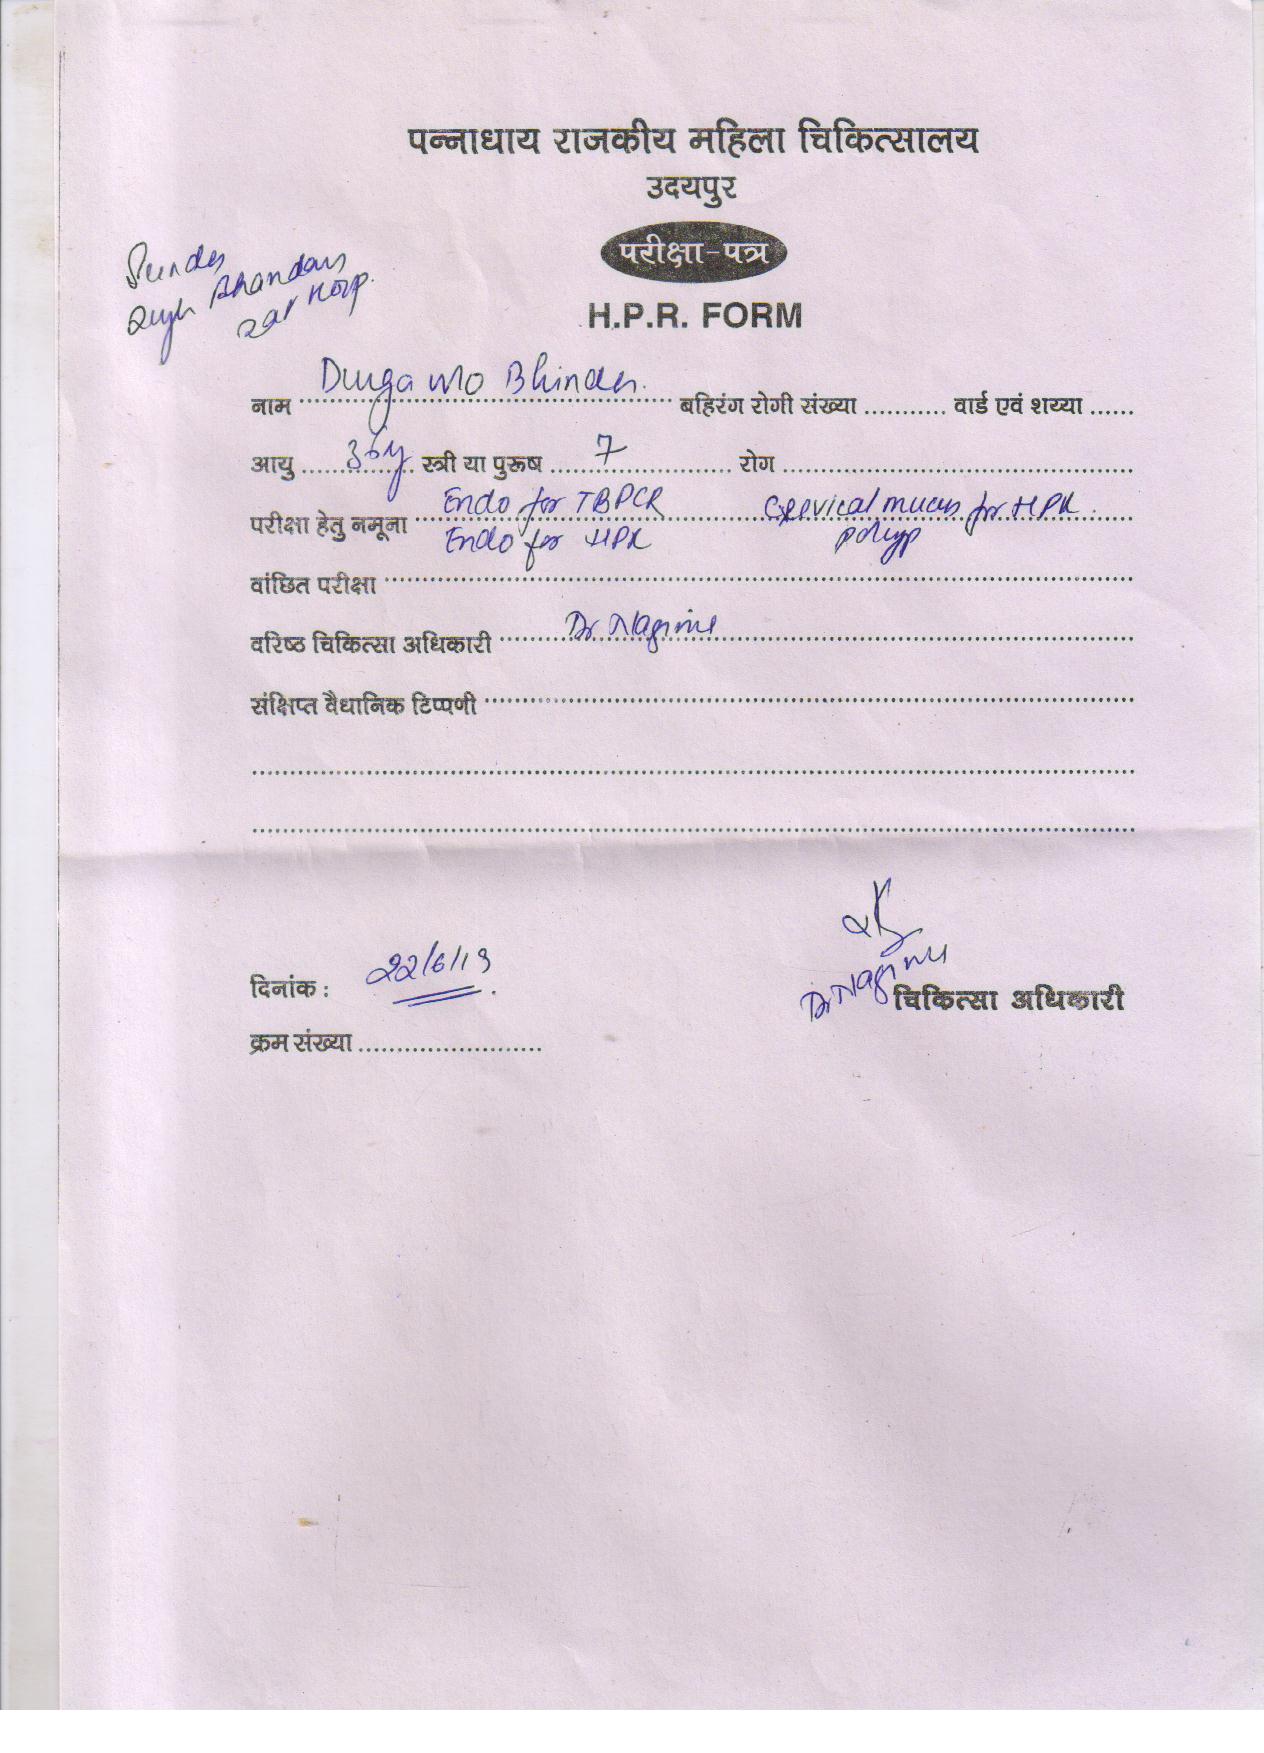 पन्नाधाय राजकीय महिला चिकित्सालय
उदयपुर
परीक्षा-पत्र
H.P.R. FORM
Bhandari
Hosp.
नाम Durga w/o Bhinder. बहिरंग रोगी संख्या ........... वार्ड एवं शय्या ......
आयु 36y स्त्री या पुरूष 7 रोग
परीक्षा हेतु नमूना Endo for TBPCR Cervical mucus for HPR.
Endo for HPR polyp
वांछित परीक्षा
वरिष्ठ चिकित्सा अधिकारी Dr. Nagina
संक्षिप्त वैधानिक टिप्पणी
दिनांक : 22/6/13
Dr. Nagina चिकित्सा अधिकारी
क्रम संख्या